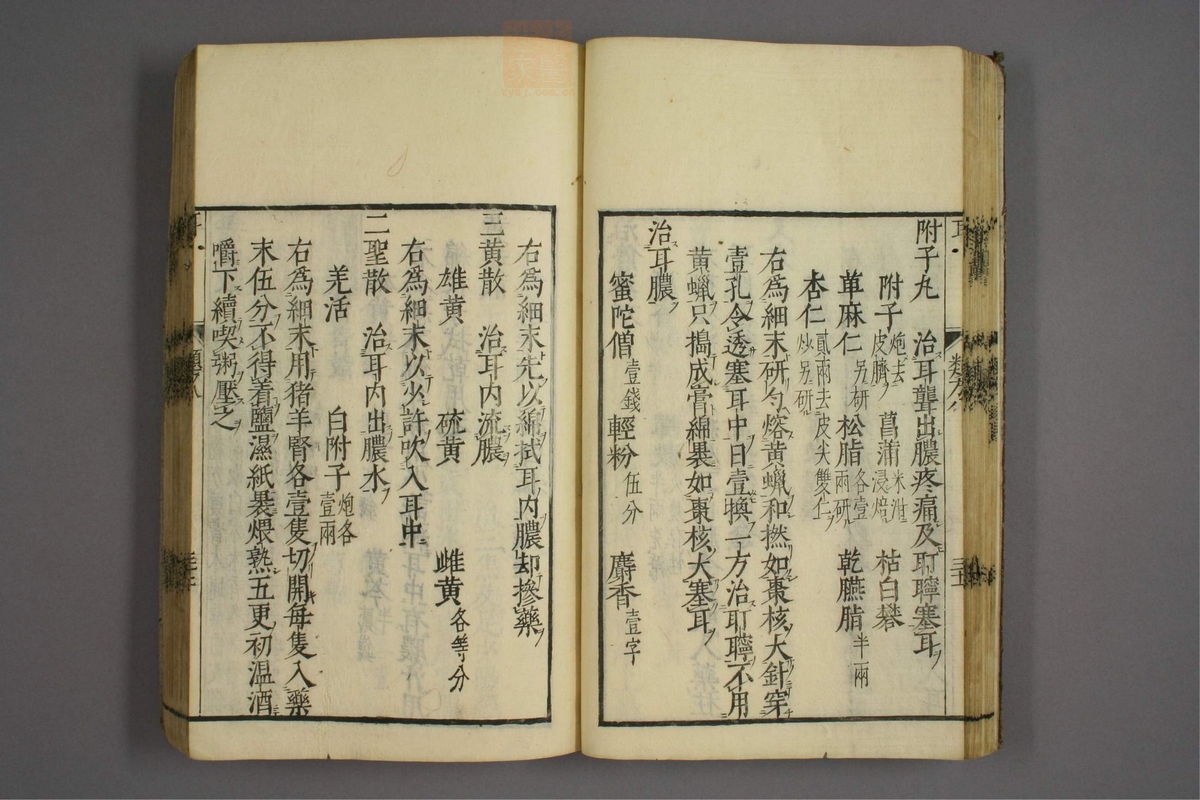 附子丸　治耳聾出膿疼痛及耵聹塞耳
附子炮去皮臍　菖蒲米泔浸焙　枯白礬
萆麻仁另研　松脂各壹兩研　乾臙脂半兩
杏仁貳兩去皮尖雙仁炒另研
右爲細末研勻熔黃蠟和撚如棗核大針穿
壹孔令透塞耳中日壹換一方治耵聹不用
黃蠟只搗成膏綿裹如棗核大塞耳
治耳膿
蜜陀僧壹錢　輕粉伍分　麝香壹字
右爲細末先以綿拭耳内膿却摻藥
三黃散　治耳内流膿
雄黃　硫黃　雌黃各等分
右爲細末以少許吹入耳中
二聖散　治耳内出膿水
羌活　白附子炮各壹兩
右爲細末用猪羊腎各壹隻切開每隻入藥
末伍分不得着鹽濕紙裹煨熟五更初温酒
嚼下續喫粥壓之